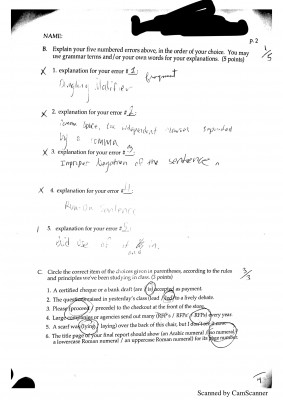 NAME:
p.2
B. Explain your five numbered errors above, in the order of your choice. You may
use grammar terms and/or your own words for your explanations. (5 points)
1/5
X 1. explanation for your error # 1: Fragment
Dangling Modifier
X 2. explanation for your error # 2:
Comma Splice, two independent clauses separated
by a comma
X 3. explanation for your error # 3:
Improper Negation of the sentence
X 4. explanation for your error # 4:
Run-on Sentence
1 5. explanation for your error # 5:
did use of in.
C. Circle the correct item of the choices given in parentheses, according to the rules
and principles we've been studying in class. (3 points)
3/3
1. A certified cheque or a bank draft (are / is) accepted as payment.
2. The question raised in yesterday's class (lead / led) to a lively debate.
3. Please (proceed / precede) to the checkout at the front of the store.
4. Large companies or agencies send out many (RFP's / RFPs) every year.
5. A scarf was (lying / laying) over the back of this chair, but I don't see it now.
6. The title page of your final report should show (an Arabic numeral / no numeral /
a lowercase Roman numeral / an uppercase Roman numeral) for its page number.
Scanned by CamScanner